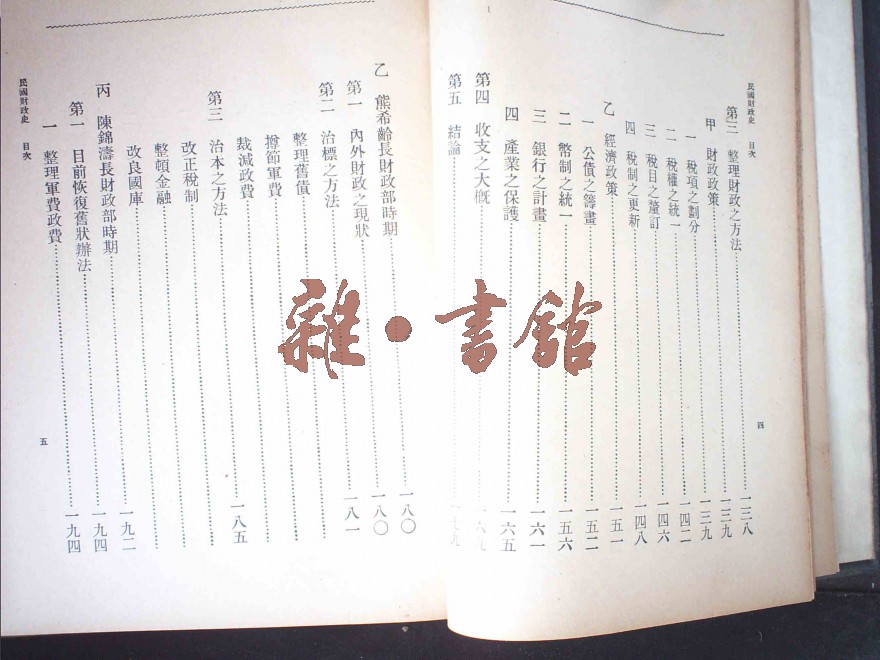 民國財政史 目次
第三 整理財政之方法……一三八
甲 財政政策……一三九
一 稅項之劃分……一三九
二 稅權之統一……一四二
三 稅目之釐訂……一四六
四 稅制之更新……一四八
乙 經濟政策……一五一
一 公債之籌畫……一五二
二 幣制之統一……一五六
三 銀行之計畫……一六一
四 產業之保護……一六五
第四 收支之大概……一六九
第五 結論……一七九
四
乙 熊希齡長財政部時期……一八〇
第一 內外財政之現狀……一八〇
第二 治標之方法……一八一
整理舊債……
撙節軍費……
裁減政費……
第三 治本之方法……一八五
改正稅制……
整頓金融……
改良國庫……
丙 陳錦濤長財政部時期……一九二
第一 目前恢復舊狀辦法……一九四
一 整理軍費政費……一九四
民國財政史 目次
五
雜·書館